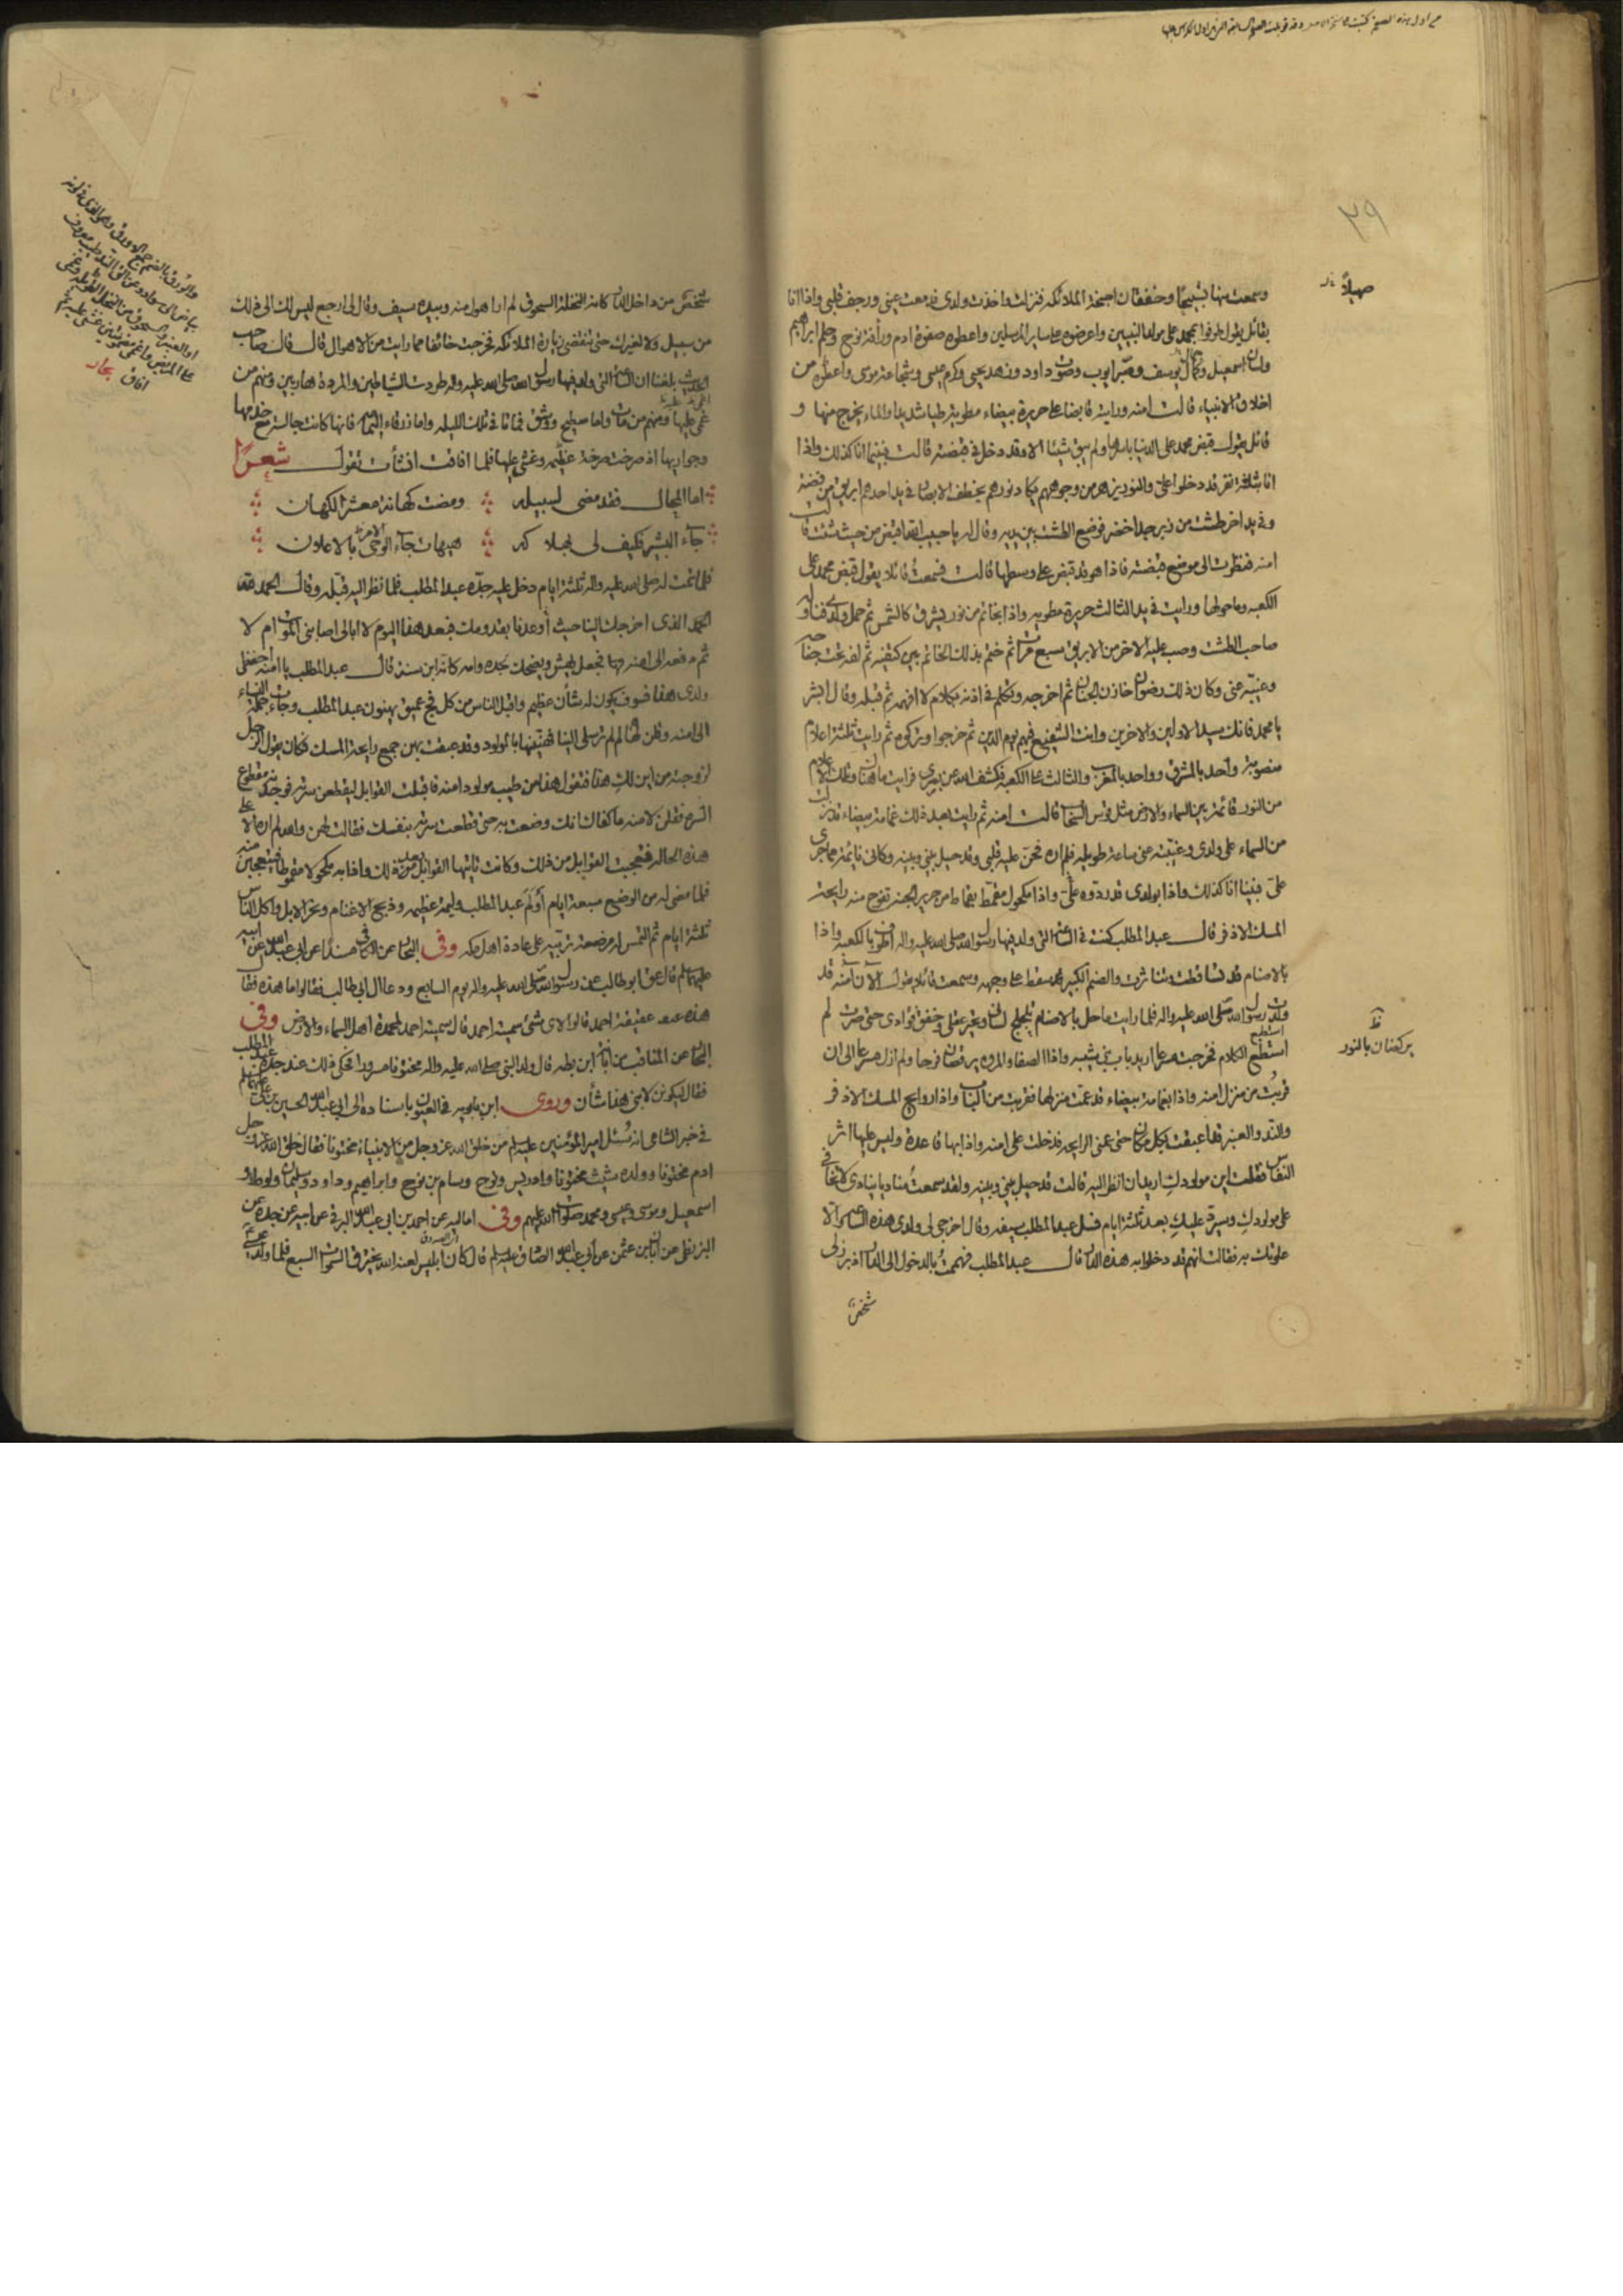 ٢٩
صهيلاً
وسمعت منها تسبيحا وخفقان اجنحة الملائكة فنزلت واخذت ولدى فدمعت عينى ورجف قلبى واذا انا
بقائل يقول طوفوا بمحمد على مولد النبيين واعرضوه على ساير المرسلين واعطوه صفوة ادم ورأفة نوح وحلم ابراهيم
ولسان اسمعيل وكمال يوسف وصبر ايوب وصوت داود وزهد يحيى وكرم عيسى وشجاعة موسى واعطوه من
اخلاق الانبياء قالت امنه ورايته قابضا على حريرة بيضاء مطوية طيا شديدا والماء يخرج منها و
قائل يقول قبض محمد على الدنيا باسرها ولم يبق شيئا الا وقد دخل في قبضته قالت فبينما انا كذلك واذا
انا بثلثة نفر قد دخلوا على والنور يزهر من وجوههم يكاد نورهم يخطف الابصار في يد احدهم ابريق من فضة
وفي يد اخر طشت من زبرجد اخضر فوضع الطشت بين يديه وقال له يا حبيب الله اقبض من حيث شئت قالت
امنه فنظرت الى موضع قبضته فاذا هو قد قبض على وسطها قالت فسمعت قائلا يقول قبض محمد على
الكعبه وما حولها ورايت في يد الثالث حريرة مطويه واذا بخاتم من نور يشرق كالشمس ثم حمل ولدى فناوله
صاحب الطشت وصب عليه الاخر من الابريق سبع مرات ثم ختم بذلك الخاتم بين كتفيه ثم لفه تحت جناحه
وغيبه عنى وكان ذلك رضوان خازن الجنان ثم اخرجه وتكلم في اذنه بكلام لا افهمه ثم قبله وقال ابشر
يا محمد فانك سيد الاولين والاخرين وانت الشفيع فيهم يوم الدين ثم خرجوا وتركوه ثم رايت ثلثة اعلام
منصوبة واحد بالمشرق وواحد بالمغرب والثالث على الكعبه فكشف الله عن بصرى فرايت ما هناك وتلك الاعلام
من النور قائمة بين السماء والارض مثل قوس السحاب قالت امنه ثم رايت بعد ذلك غمامة بيضاء قد نزلت
من السماء على ولدى وغيبته عنى ساعة طويلة فلم اره فحن عليه قلبى وقد حيل بينى وبينه وكانى نائمة مما جرى
على فبينا انا كذلك واذا بولدى قد ردوه على واذا مكحول مقمط بقماط من حرير الجنه تفوح منه رايحة
المسك الاذفر قال عبد المطلب كنت في الساعة التى ولد فيها رسول الله صلى الله عليه واله اطوف بالكعبه واذا
بالاصنام قد تساقطت وتناثرت والصنم الكبير قد سقط على وجهه وسمعت قائلا يقول الآن آمنه قد
ولدت رسول الله صلى الله عليه واله فلما رايت ما حل بالاصنام تلجلج لسانى وتحير عقلى وخفق فوادى حتى صرت لم
استطع الكلام فخرجت مسرعا اريد باب بنى شيبه واذا الصفا والمروه يرقصان فرحا ولم ازل مسرعا الى ان
يركضان بالنور
قربت من منزل امنه واذا بغمامة بيضاء قد عمت منزلها فقربت من الباب واذا روايح المسك الاذفر
والند والعنبر قد اعبقت بكل مكان حتى عمنى الرايحه فدخلت على امنه واذا بها قاعدة وليس عليها اثر
النفاس فقلت اين مولودك اريد ان انظر اليه قالت قد حيل بينى وبينه ولقد سمعت مناديا ينادى لا تخافى
على مولودك وسيرد عليك بعد ثلثة ايام فسل عبد المطلب سيفه وقال اخرجى لى ولدى هذه الساعة والا
علوتك به فقالت انهم قد دخلوا به هذه الدار قال عبد المطلب فهممت بالدخول الى الدار اذ برز لى
شخص
شخص من داخل الدار كانه النخلة السحوق لم ار اهول منه وبيده سيف وقال لى ارجع ليس لك الى ذلك
من سبيل ولا لغيرك حتى تنقضى زيارة الملائكه فخرجت خائفا مما رايت من الاهوال قال قال صاحب
الحديث بلغنا ان الساعة التى ولد فيها رسول الله صلى الله عليه واله طردت الشياطين والمردة هاربين ومنهم من
غمى عليها ومنهم من مات واما سطيح ووشق فماتا في تلك الليله واما زرقاء اليمامه فانها كانت جالسة مع خدمها
وجواريها اذ صرخت صرخة عظيمه وغشى عليها فلما افاقت انشأت تقول شعرا
اما المحال فقد مضى لسبيله ومضت كهانة معشر الكهان
جاء البشير فكيف لى بهلاكه هيهات جاء الوحى بالاعلان
فلما تمت له صلى الله عليه واله ثلثة ايام دخل عليه جده عبد المطلب فلما نظر اليه قبله وقال الحمد لله
الذى اخرجك الينا حيث أوعدنا بقدومك فبعد هذا اليوم لا ابالى اصابنى الموت ام لا
ثم دفعه الى امنه فجعل يهش ويضحك لجده وامه كانه ابن سنة قال عبد المطلب يا امنه احفظى
ولدى هذا فسوف يكون له شأن عظيم واقبل الناس من كل فج عميق يهنون عبد المطلب وجاءت جملة النساء
الى امنه وقلن لها لم لم ترسلى الينا فهنينها بالمولود وقد عبقت بهن جميع رايحة المسك فكان يقول الرجل
لزوجته من اين لك هذا فتقول هذا من طيب مولود امنه فاقبلت القوابل ليقطعن سرته فوجدنه مقطوع
السرة فقلن لامنه ما كفاك انك وضعت به حتى قطعت سرته بنفسك فقالت لهن والله لم اره الا على
هذه الحالة فتعجبت القوابل من ذلك وكانت تاتيها القوابل بعد ذلك واذا به مكحولا مقموطا فيتعجبن منه
فلما مضى له من الوضع سبعة ايام أولم عبد المطلب وليمة عظيمه وذبح الاغنام ونحر الابل واكل الناس
ثلثة ايام ثم التمس له مرضعة تربيه على عادة اهل مكه وفى البحار عن الكافى مسندا عن ابى عبد الله عن ابيه
عليهما السلم قال عق ابو طالب عن رسول الله صلى الله عليه واله يوم السابع ودعا ال ابى طالب فقالوا ما هذه فقال
هذه عقيقة احمد قالوا لاى شئ سميته احمد قال سميته احمد لمحمدة اهل السماء والارض وفى
البحار عن المناقب عن ابانة ابن بطه قال ولد النبى صلى الله عليه واله مختونا مسرورا فحكى ذلك عند جده عبد المطلب
فقال ليكونن لابنى هذا شأن وروى ابن بابويه في العيون باسناده الى ابى عبد الله الحسين بن على عليهما السلم
في خبر الشامى انه سئل امير المؤمنين عليه السلم من خلق الله عز وجل من الانبياء مختونا فقال خلق الله عز وجل
ادم مختونا وولد شيث مختونا وادريس ونوح وسام بن نوح وابراهيم وداود وسليمان ولوط و
اسمعيل وموسى وعيسى ومحمد صلوات الله عليهم وفى اماليه عن احمد بن ابى عبد الله البرقى عن ابيه عن جده عن
البزنطى عن ابان بن عثمن عن ابى عبد الله الصادق عليه السلم قال كان ابليس لعنه الله يخترق السموات السبع فلما ولد عيسى